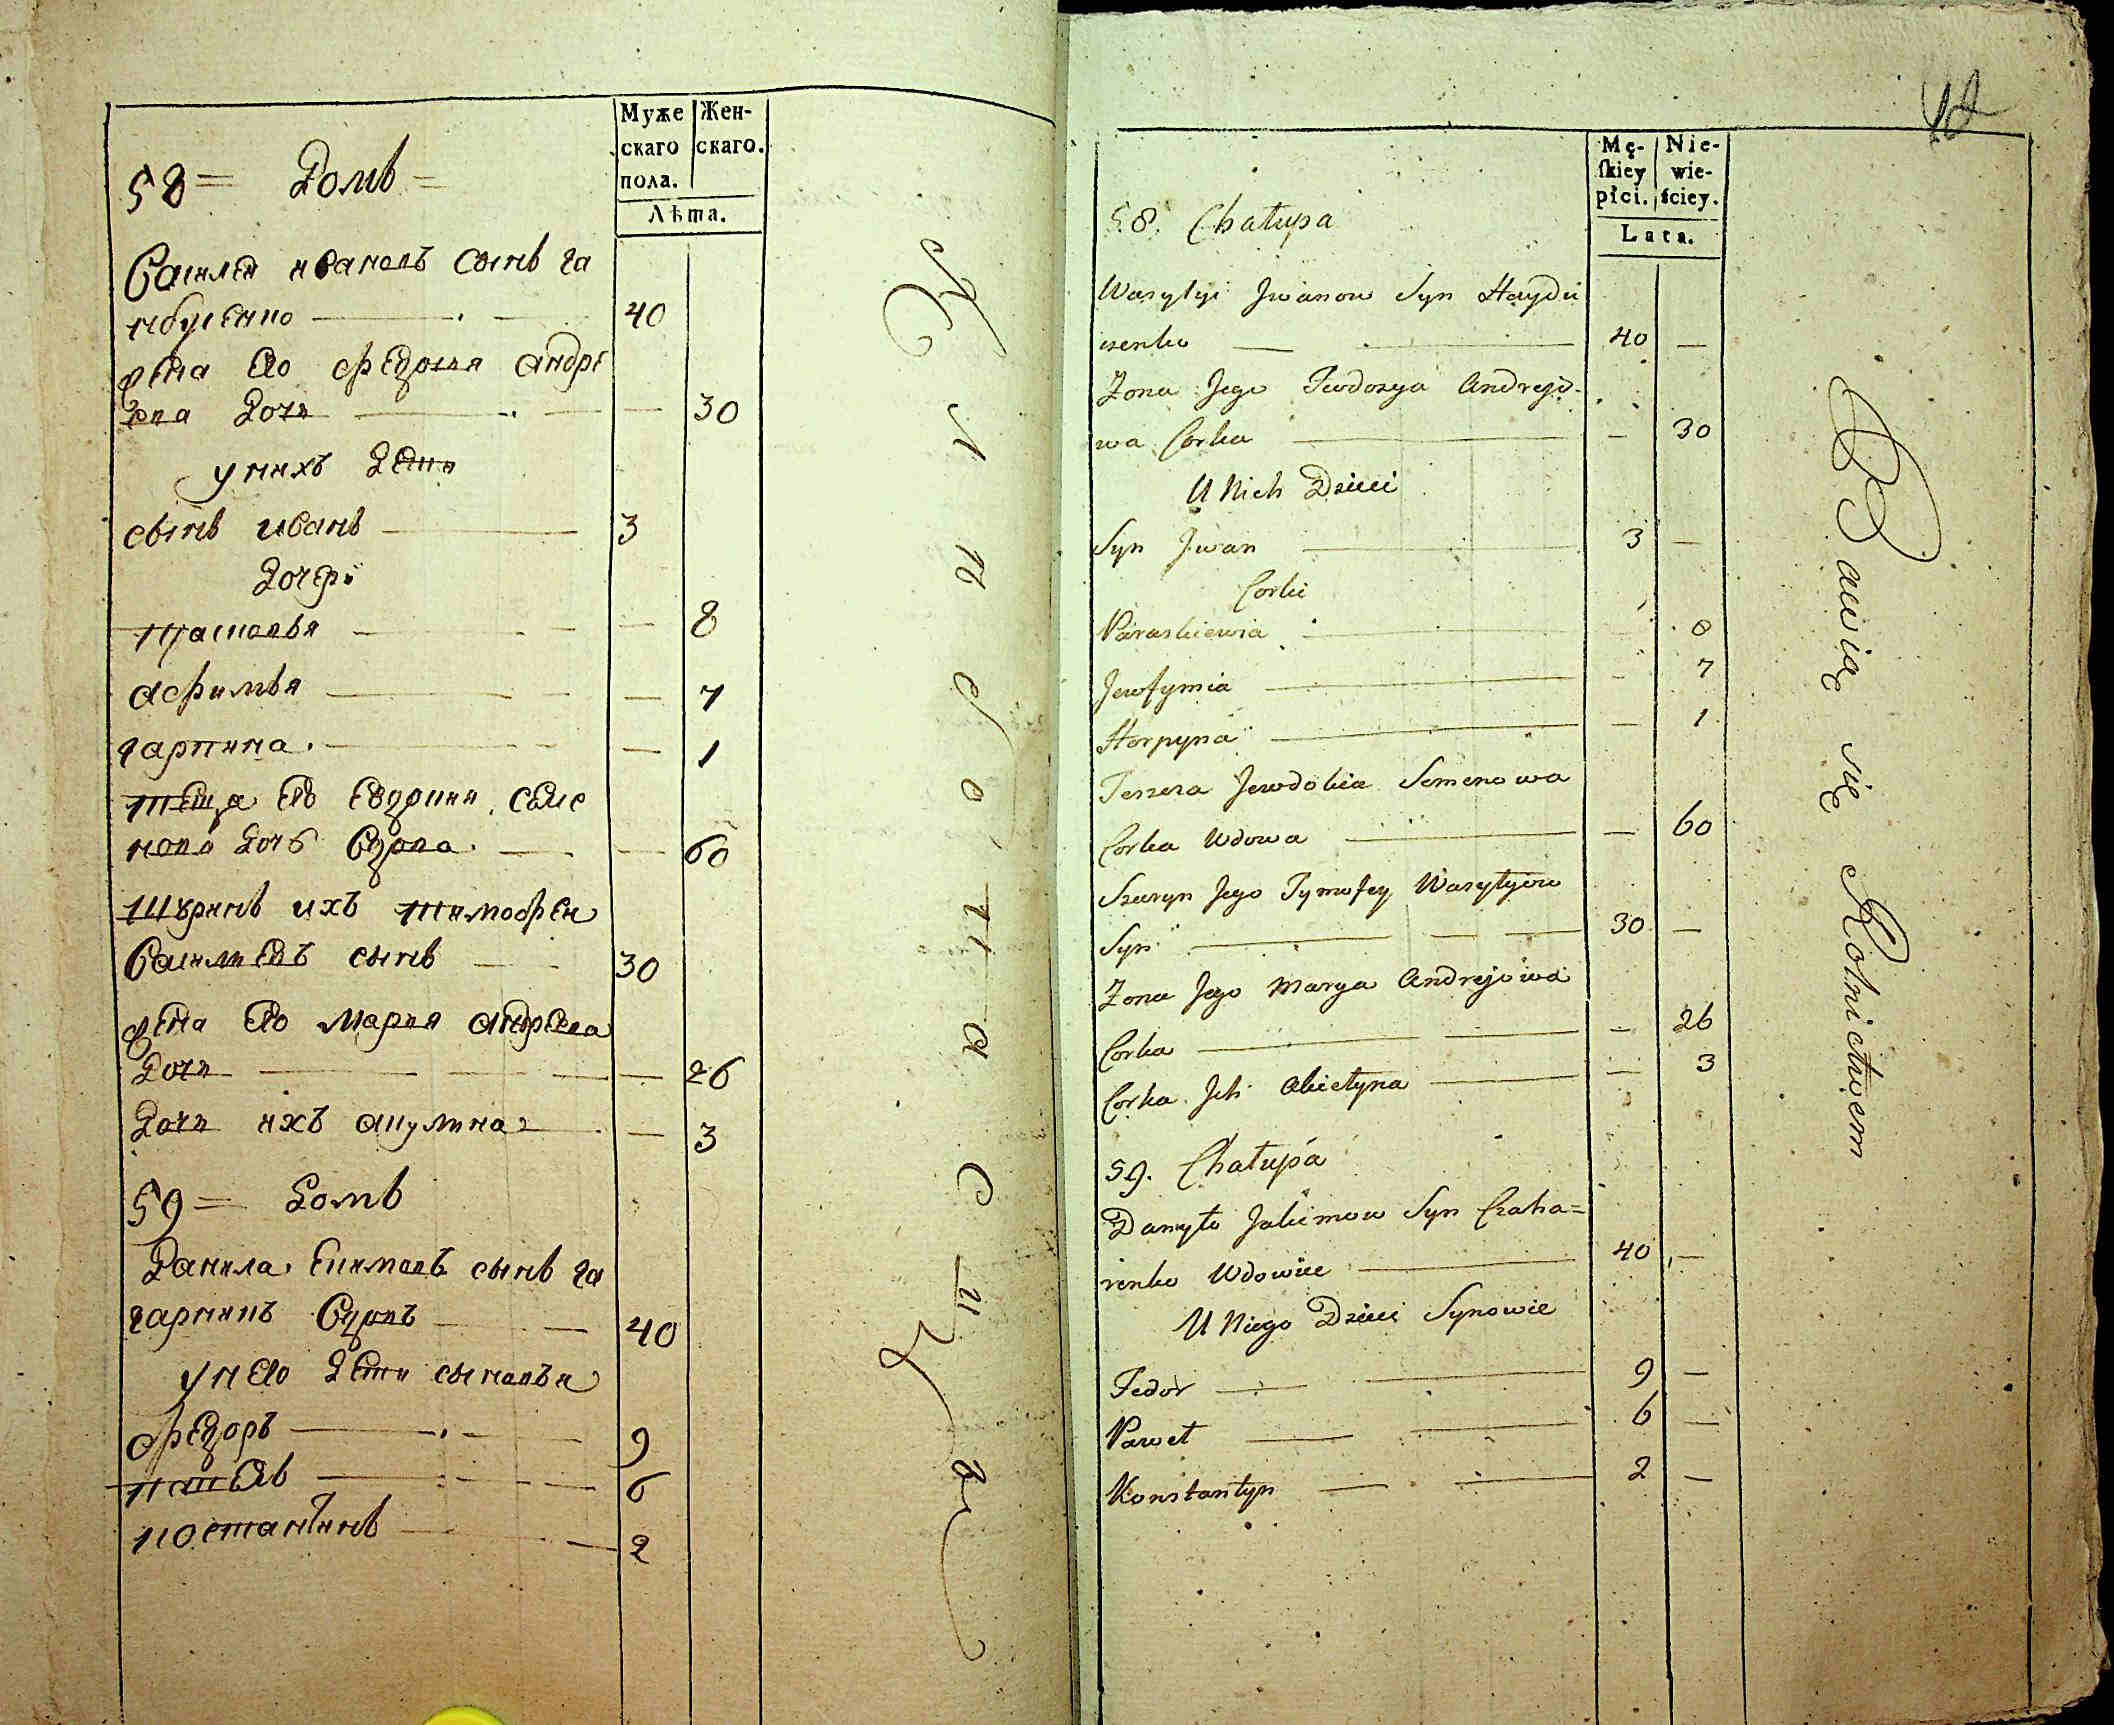 Муже Жен-
скаго скаго.
пола.
Лѣта.
58 = Домъ =
Василей ивановъ сынъ га
40
жена его федосия андре
ева дочь — 30
у нихъ дети
сынъ иванъ 3
дочери
прасковья — 8
афимья — 7
гарпина — 1
теща его евдокия семе
нова дочь вдова — 60
шуринъ ихъ тимофей
васильевъ сынъ 30
жена его мария андреева
дочь — 26
дочь ихъ акулина — 3
59 = домъ
данила екимовъ сынъ га
вдовъ 40
у него дети сыновья
федоръ 9
павелъ 6
костантинъ 2
42
Mę- Nie-
skiey wie-
płci. sciey.
Lata.
58. Chałupa
Wasylyi Jwanow Syn Haydu
czenko — 40 —
Żona Jego Fewdosya Andrejo-
wa Corka — 30
U Nich Dzieci
Syn Jwan 3 —
Corki
Paraskiewia 8
Jewfymia — 7
Horpyna — 1
Teszcza Jewdokia Semenowa
Corka Wdowa — 60
Szuryn Jego Tymofey Wasylyiow
Syn 30 —
Żona Jego Marya Andrejowa
Corka — 26
Corka Jch Akielyna — 3
59. Chałupa
Danyło Jakimow Syn
Wdowiec 40 —
U Niego Dzieci Synowie
Fedor 9 —
Paweł 6 —
Konstantyn 2 —
Bawią się Rolnictwem